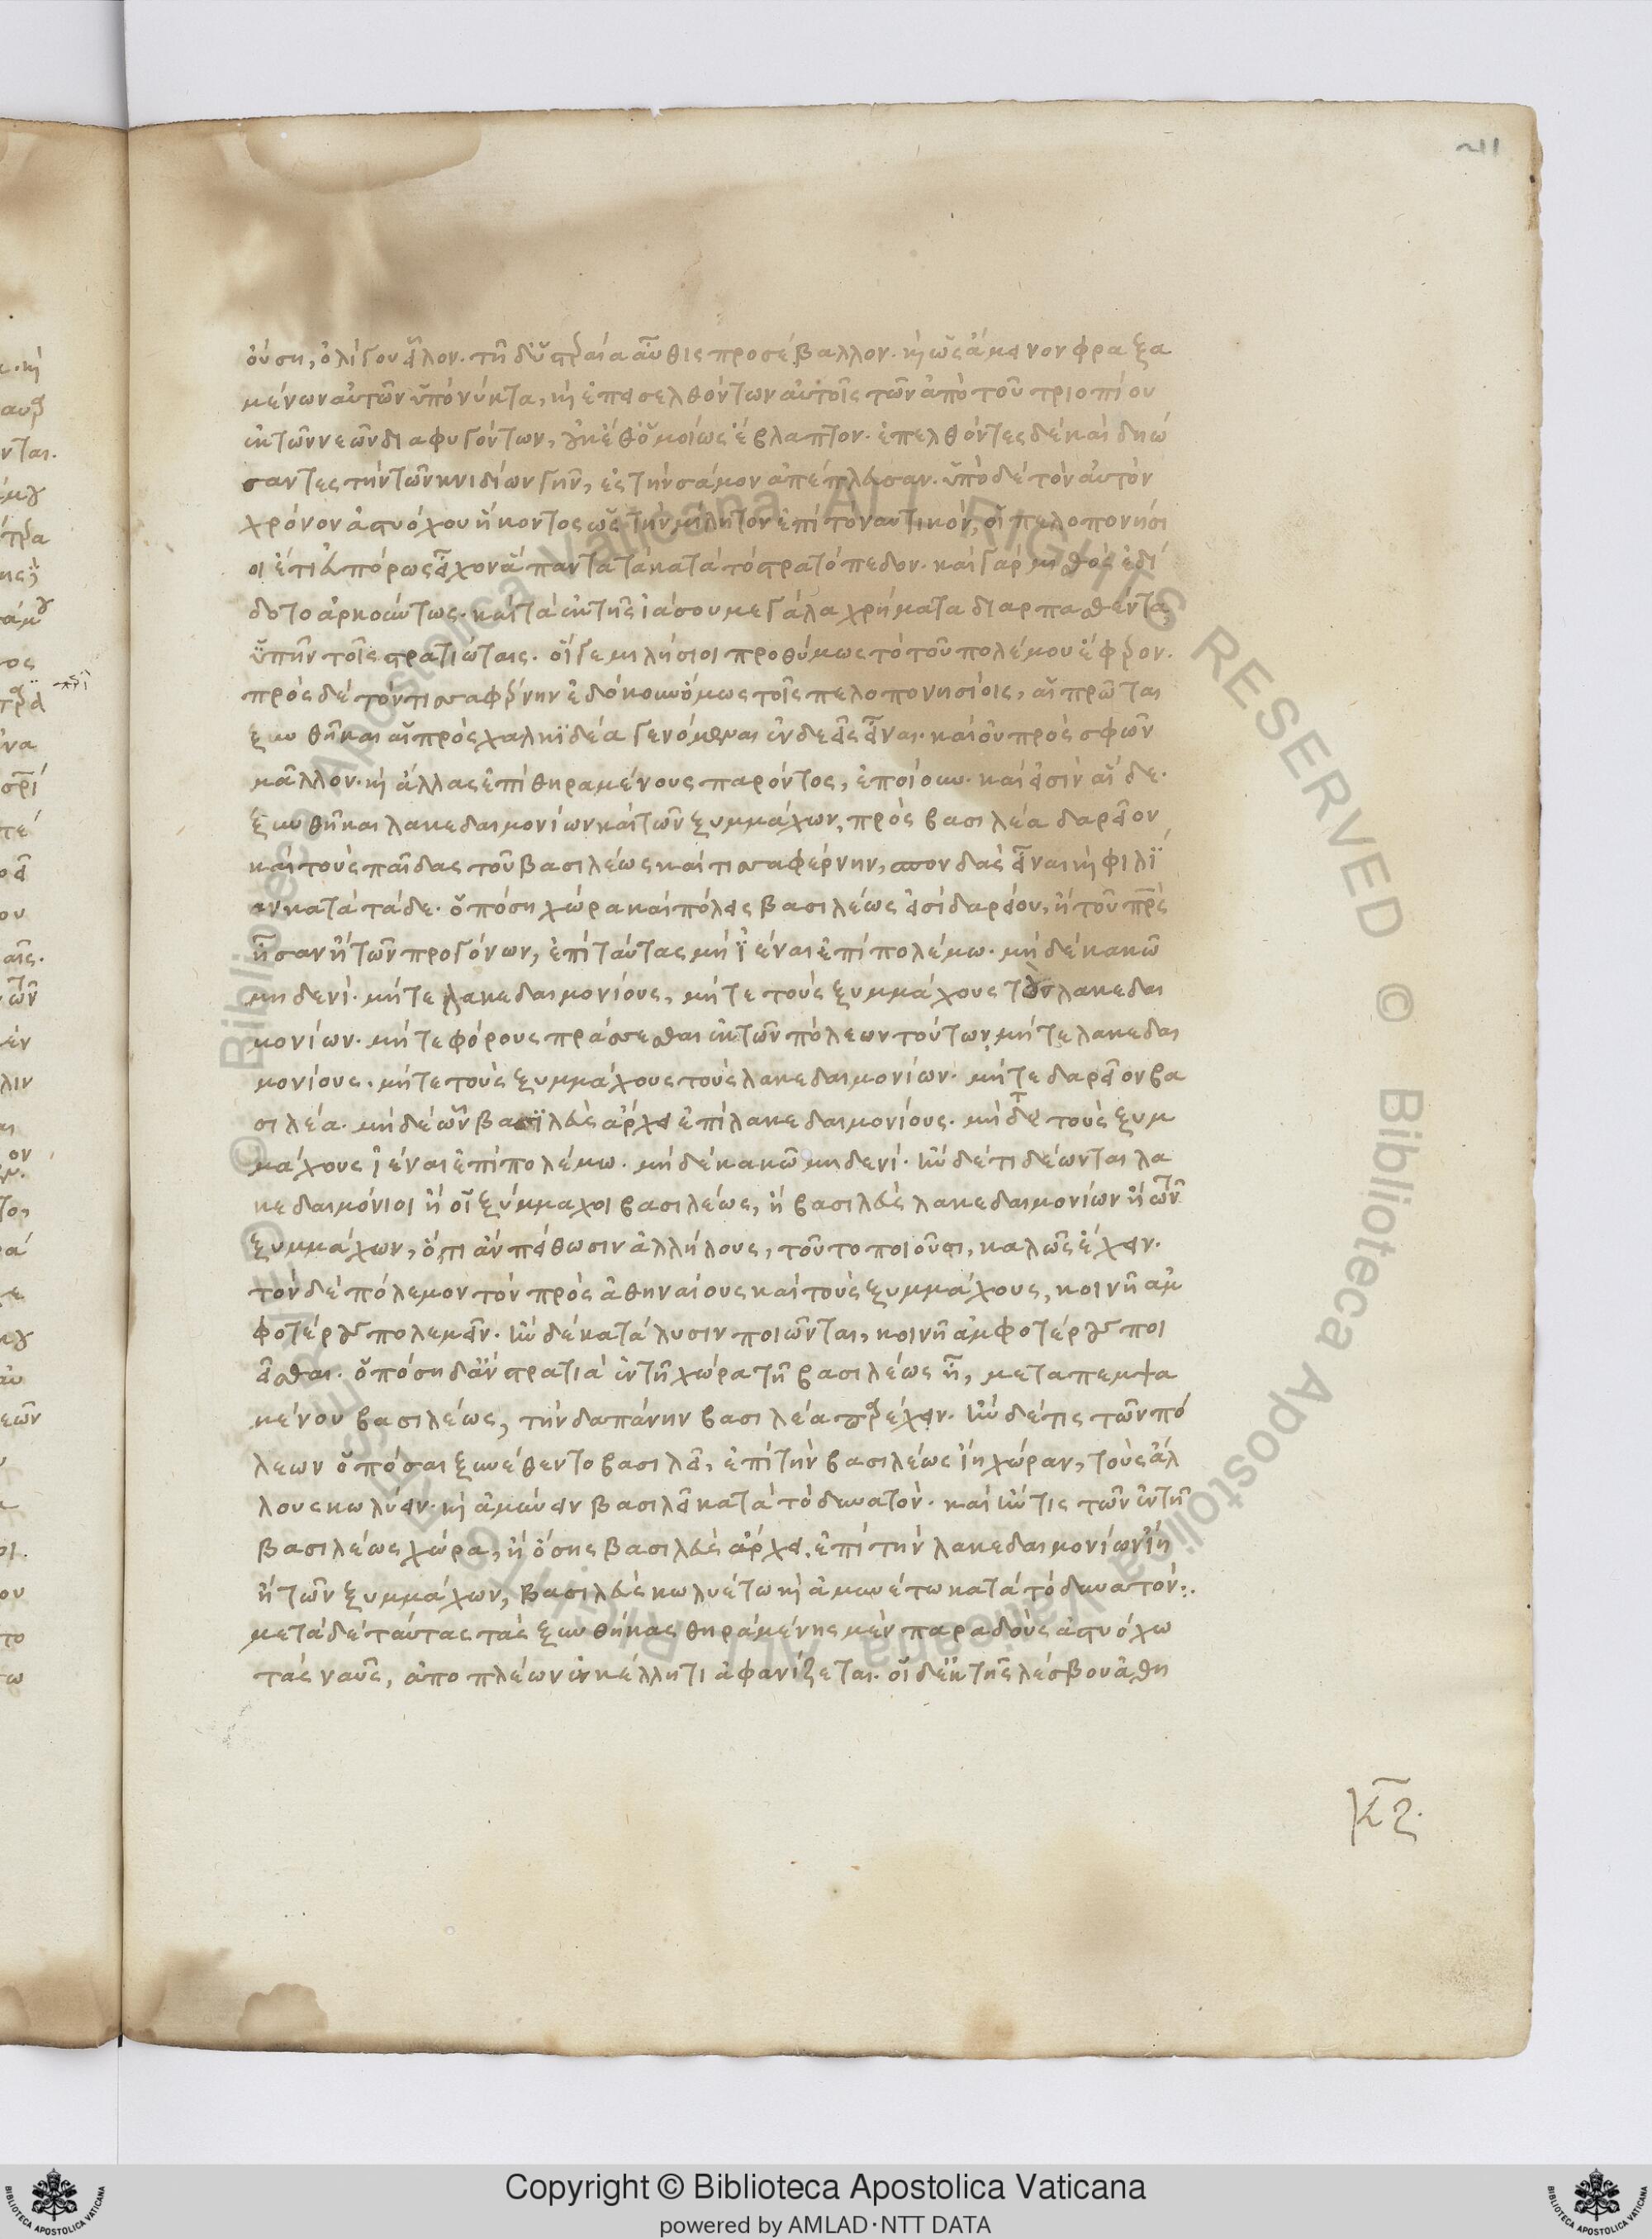 211
ούση, ὀλίγου εἷλον. τῆ δ' ὑστεραία αὖθις προσέβαλλον. καὶ ὡς ἄμεινον φραξα
μένων αὐτῶν ὑπὸ νύκτα, καὶ ἐπεισελθόντων αὐτοῖς τῶν ἀπὸ τοῦ τριοπίου
ἐκ τῶν νεῶν διαφυγόντων, οὐκέθ' ὁμοίως ἔβλαπτον. ἐπελθόντες δὲ καὶ δηώ
σαντες τὴν τῶν κνιδίων γῆν, ἐς τὴν σάμον ἀπέπλευσαν. ὑπὸ δὲ τὸν αὐτὸν
χρόνον ἀστυόχου ἥκοντος ὡς τὴν μίλητον ἐπὶ τὸ ναυτικὸν, οἱ πελοπονήσι
οι ἔτι εὐπόρως εἶχον ἅπαντα τὰ κατὰ τὸ στρατόπεδον. καὶ γὰρ μισθὸς ἐδί
δοτο ἀρκούντως. καὶ τὰ ἐκ τῆς ἰάσου μεγάλα χρήματα διαρπασθέντα,
ὑπῆν τοῖς στρατιώταις. οἵ γε μιλήσιοι προθύμως τὸ τοῦ πολέμου ἔφερον.
πρὸς δὲ τὸν τισσαφέρνην ἐδόκουν ὅμως τοῖς πελοπονησίοις, αἱ πρῶται
ξυνθῆκαι αἱ πρὸς χαλκιδέα γενόμεναι ἐνδεεῖς εἶναι. καὶ οὐ πρὸς σφῶν
μᾶλλον. καὶ ἄλλας ἐπὶ θηραμένους παρόντος, ἐποίουν. καὶ εἰσὶν αἵδε.
ξυνθῆκαι λακεδαιμονίων καὶ τῶν ξυμμάχων, πρὸς βασιλέα δαρεῖον
καὶ τοὺς παῖδας τοῦ βασιλέως καὶ τισσαφέρνην, σπονδὰς εἶναι καὶ φιλί
αν κατὰ τάδε. ὁπόση χώρα καὶ πόλεις βασιλέως εἰσὶ δαρείου, ἢ τοῦ πρς
ἦσαν ἢ τῶν προγόνων, ἐπὶ ταύτας μὴ ἰέναι ἐπὶ πολέμω. μὴ δὲ κακῶ
μηδενὶ. μήτε λακεδαιμονίους, μήτε τοὺς ξυμμάχους τοὺς λακεδαι
μονίων. μήτε φόρους πράσσεσθαι ἐκ τῶν πόλεων τούτων, μήτε λακεδαι
μονίους. μήτε τοὺς ξυμμάχους τοὺς λακεδαιμονίων. μήτε δαρεῖον βα
σιλέα. μὴ δὲ ὧν βασιλεὺς ἄρχει ἐπὶ λακεδαιμονίους. μὴ δὲ τοὺς ξυμ
μάχους ἰέναι ἐπὶ πολέμω. μὴ δὲ κακῶ μηδενὶ. ἢν δέ τι δέωνται λα
κεδαιμόνιοι ἢ οἱ ξύμμαχοι βασιλέως, ἢ βασιλεὺς λακεδαιμονίων ἢ τῶν
ξυμμάχων, ὅ,τι ἂν πείθωσιν ἀλλήλους, τοῦτο ποιοῦσι, καλῶς ἔχειν.
τὸν δὲ πόλεμον τὸν πρὸς ἀθηναίους καὶ τοὺς ξυμμάχους, κοινῆ ἀμ
φοτέρους πολεμεῖν. ἢν δὲ κατάλυσιν ποιῶνται, κοινῆ ἀμφοτέρους ποι
εῖσθαι. ὁπόση δ' ἂν στρατιὰ ἐν τῆ χώρα τῆ βασιλέως ἦ, μεταπεμψα
μένου βασιλέως, τὴν δαπάνην βασιλέα παρέχειν. ἢν δέ τις τῶν πό
λεων ὁπόσαι ξυνέθεντο βασιλεῖ, ἐπὶ τὴν βασιλέως ἴη χώραν, τοὺς ἄλ
λους κωλύειν. καὶ ἀμύνειν βασιλεῖ κατὰ τὸ δυνατὸν. καὶ ἤν τις τῶν ἐν τῆ
βασιλέως χώρα, ἢ ὅσης βασιλεὺς ἄρχει, ἐπὶ τὴν λακεδαιμονίων ἴη
ἢ τῶν ξυμμάχων, βασιλεὺς κωλυέτω καὶ ἀμυνέτω κατὰ τὸ δυνατόν:.
μετὰ δὲ ταύτας τὰς ξυνθήκας θηραμένης μὲν παραδοὺς ἀστυόχω
τὰς ναῦς, ἀποπλέων ἐν κέλλητι ἀφανίζεται. οἱ δ' ἐκ τῆς λέσβου ἀθη
κζ.
Copyright © Biblioteca Apostolica Vaticana
powered by AMLAD·NTT DATA